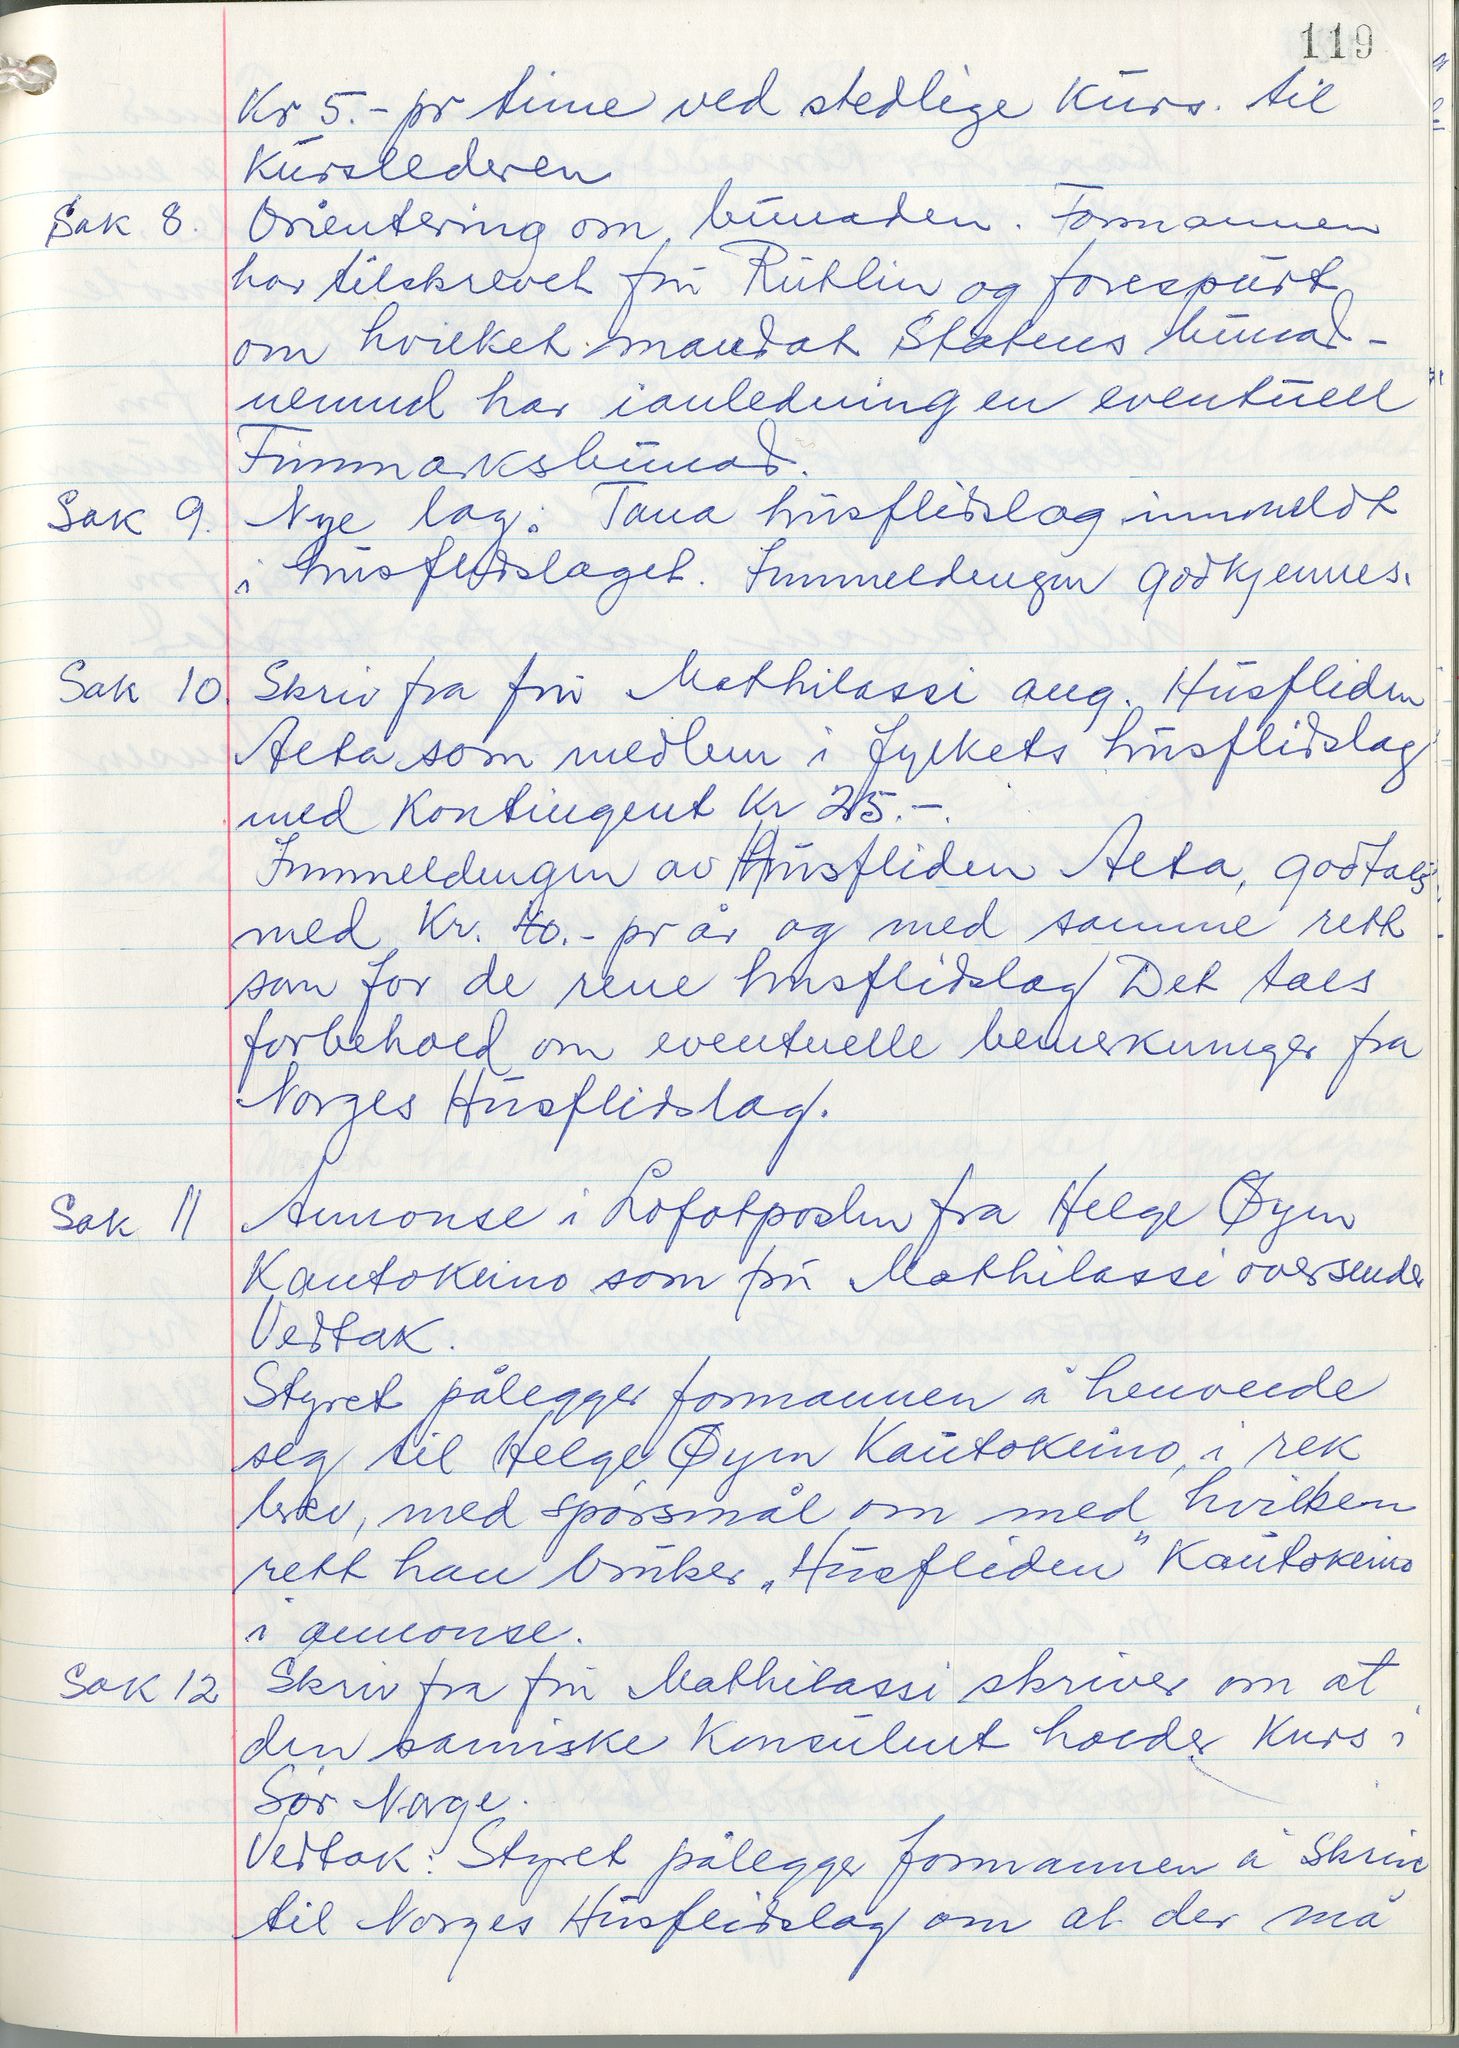 119
Kr 5.- pr time ved stedlige kurs. til
kurslederen
Sak 8. Orientering om bunaden. Formannen
har tilskrevet fru Rutlin og forespurt
om hvilket mandat Statens bunad-
nemnd har ianledning en eventuell
Finnmarksbunad.
Sak 9. Nye lag: Tana husflidslag innmeldt
i husflidslaget. Innmeldingen godkjennes.
Sak 10. Skriv fra fru Mathilassi ang. Husfliden
Alta som medlem i fylkets husflidslag
med kontingent Kr 25.-.
Innmeldingen av Husfliden Alta, godtas
med Kr. 40.- pr år og med samme rett
som for de rene husflidslag Det taes
forbehold om eventuelle bemerkninger fra
Norges Husflidslag.
Sak 11 Annonse i Lofotposten fra Helge Øyen
Kautokeino som fru Mathilassi oversender
Vedtak.
Styret pålegger formannen å henvende
seg til Helge Øyen Kautokeino, i rek
brev, med spørsmål om med hvilken
rett han bruker „Husfliden" Kautokeino
i annonse.
Sak 12 Skriv fra fru Mathilassi skriver om at
den samiske konsulent holder kurs i
Sør Norge.
Vedtak: Styret pålegger formannen å skrive
til Norges Husflidslag om at der må